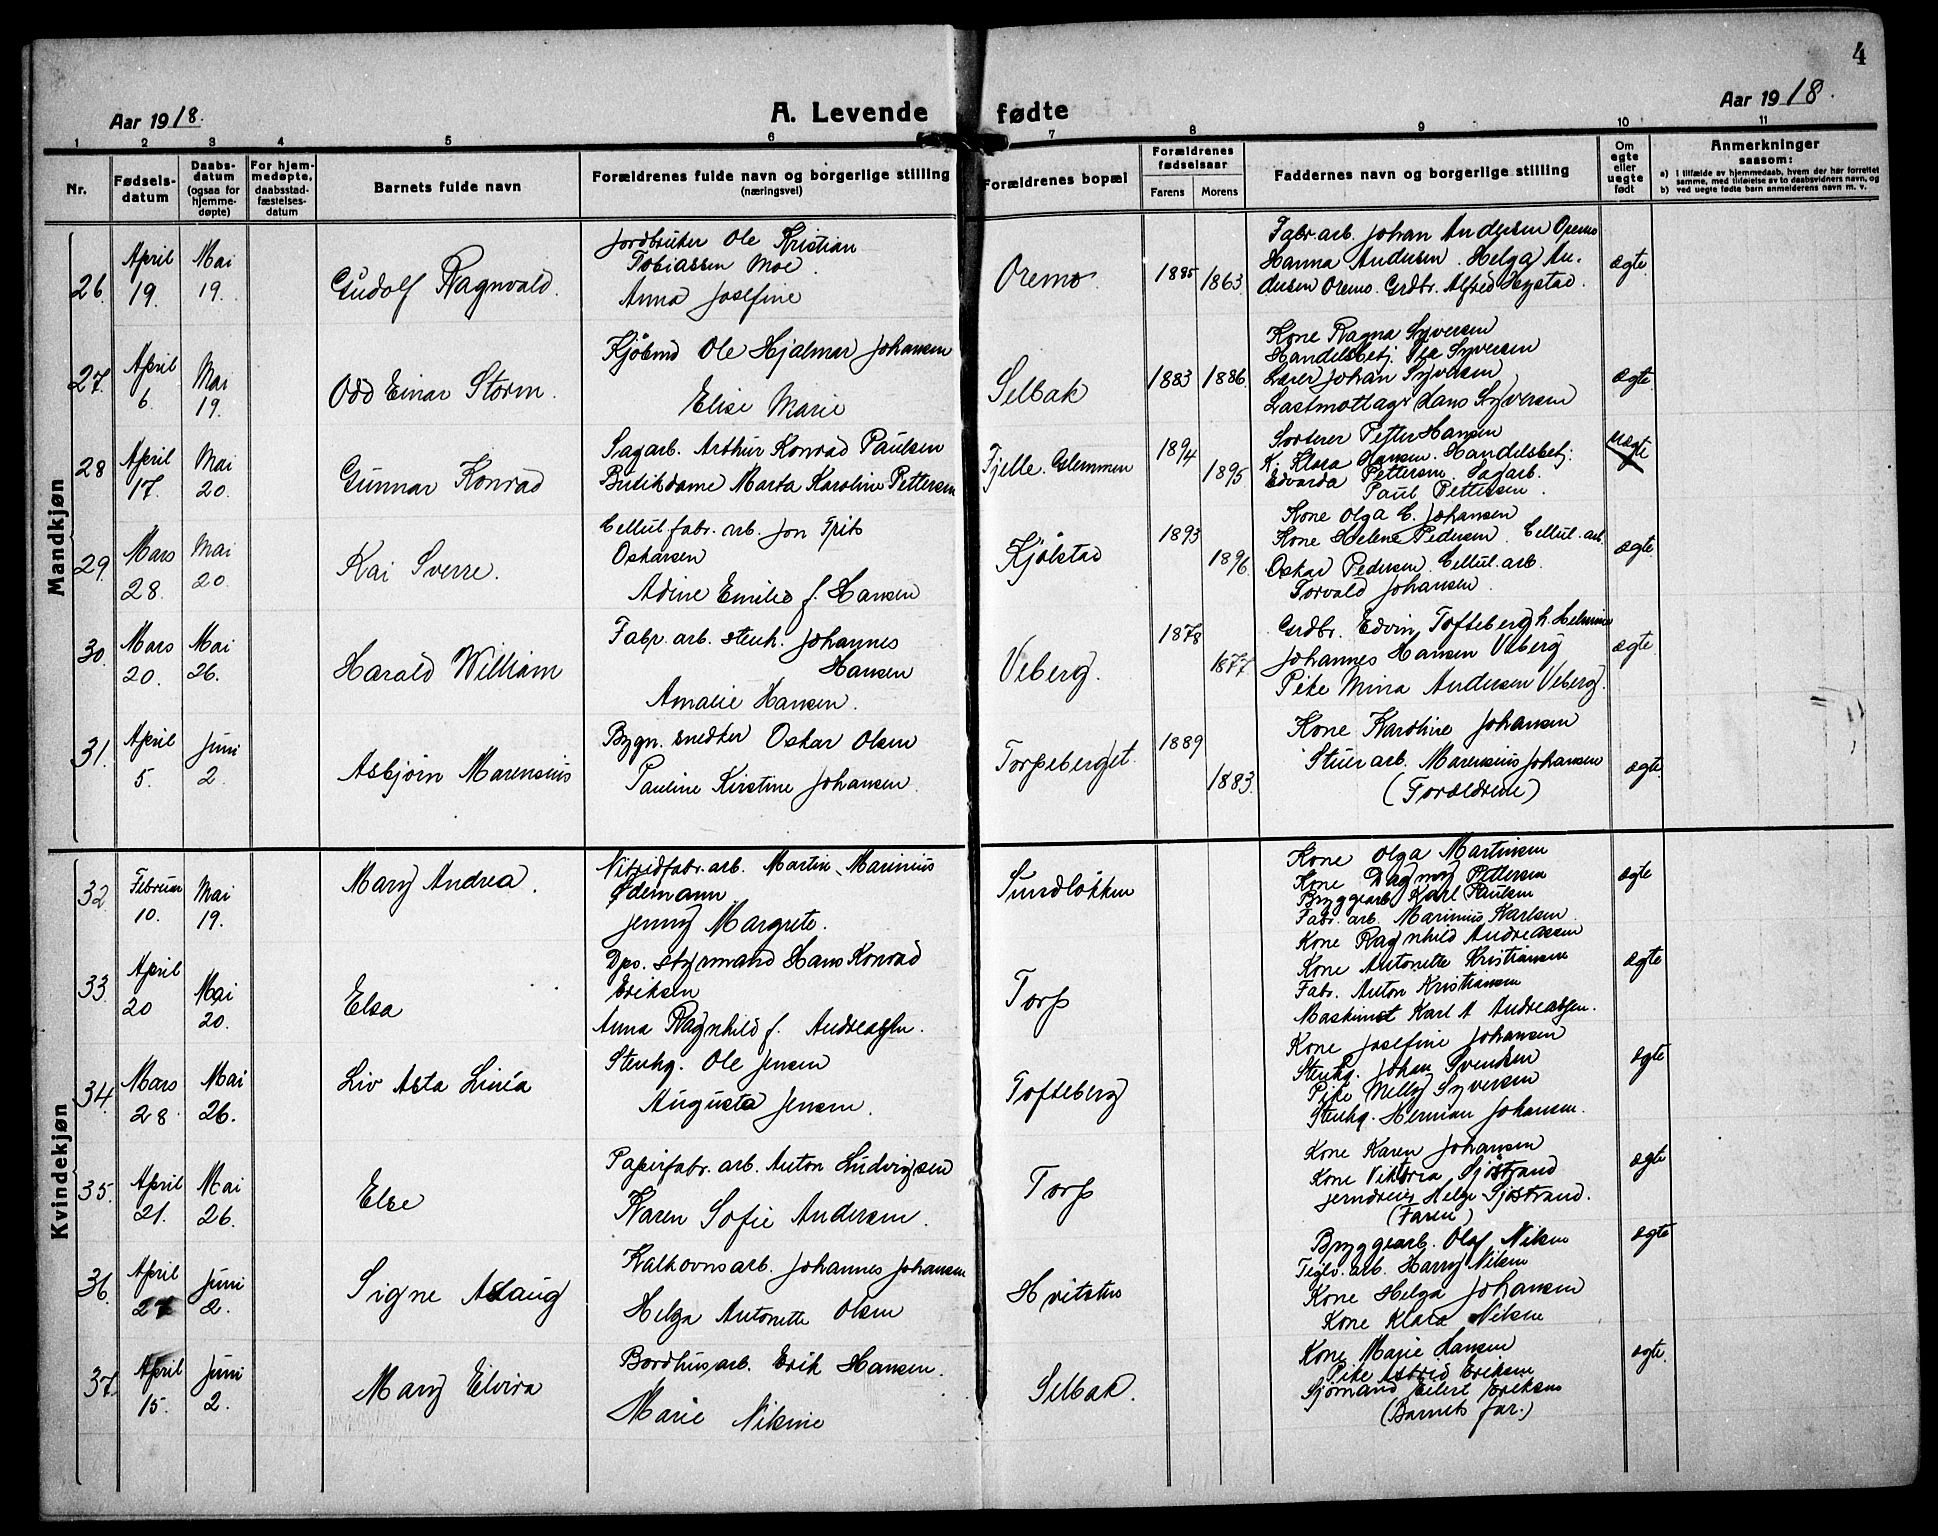 4
Aar 1918.
A. Levende fødte
Aar 1918.
1 2 3 4 5 6 7 8 9 10 11
Nr.
Fødsels-
datum
Daabs-
datum
(ogsaa for
hjemme-
døpte)
For hjem-
medøpte,
daabsstad-
fæstelses-
datum
Barnets fulde navn
Forældrenes fulde navn og borgerlige stilling
(næringsvei)
Forældrenes bopæl
Forældrenes
fødselsaar
Farens Morens
Faddernes navn og borgerlige stilling
Om
egte
eller
uegte
født
Anmerkninger
saasom:
a) i tilfælde av hjemmedaab, hvem der har forrettet
samme, med tilføielse av to daabsvidners navn, og
b) ved uegte fødte barn anmelderens navn m. v.
Mandkjøn
26.
April
19.
Mai
19.
Gudolf Ragnvald.
Jordbruker Ole Kristian
Tobiassen Moe.
Anna Josefine
Oremo.
1885
1863.
Fabr. arb. Johan Andersen Oremo
Hanna Andersen. Helga An-
dersen Oremo. Grdbr. Alfred Hystad.
ægte.
27.
April
6.
Mai
19.
Odd Einar Storm.
Kjøbmd Ole Hjalmar Johansen
Elise Marie
Selbak
1883
1886.
Kone Ragna Syversen
Handelsbetj. Syversen
Lærer Johan Syversen
Lastmottager Hans Syversen
ægte.
28
April
17.
Mai
20.
Gunnar Konrad
Sagarb. Arthur Konrad Paulsen
Butikdame Marta Karoline Pettersen
Fjelle. Glemmen
1894
1895
Sorterer Petter Hansen
K. Klara Hansen. Handelsbetj.
Edvarda Pettersen Sagarb.
Paul Pettersen.
uægte
29.
Mars
28.
Mai
20.
Kai Sverre.
Cellul. fabr. arb. Jon Frits
Oskarsen
Adine Emilie f. Hansen
Kjølstad
1893
1896.
Kone Olga C. Johansen
Kone Helene Pedersen. Cellul. arb.
Oskar Pedersen. Cellul. arb.
Torvald Johansen.
ægte
30.
Mars
20.
Mai
26.
Harald William
Fabr. arb. stenh. Johannes
Hansen
Amalie Hansen.
Veberg.
1878
1877.
Grdbr. Edvin Tofteberg h. Helmine
Johannes Hansen Veberg
Pike Mina Andersen Veberg.
ægte.
31.
April
5.
Juni
2.
Asbjørn Marensius
Bygn. snedker Oskar Olsen
Pauline Kirstine Johansen.
Torpeberget.
1889
1883.
Kone Karoline Johansen
Stuerarb. Marensius Johansen
(Forældrene)
ægte
Kvindekjøn
32
Februar
10.
Mai
19.
Mary Andrea.
Nitridfabr. arb. Martin Marinius
Ødemann.
Jenny Margrete.
Sundløkken
Kone Olga Martinsen
Kone Dagmy Pettersen
Bryggearb. Karl Paulsen
Fabr. arb. Marinius Karlsen.
ægte
33.
April
20
Mai
20.
Elsa
Dps. styrmand Hans Konrad
Eriksen
Anna Ragnhild f. Andreassen.
Torp
Kone Ragnhild Andreassen
Kone Antonette Kristiansen
Fabr. Anton Kristiansen
Maskinist Karl A Andreassen.
ægte
34.
Mars
28.
Mai
26.
Liv Asta Linéa
Stenhg. Ole Jensen
Augusta Jensen.
Tofteberg
Kone Josefine Johansen
Stenhg. Johan Svendsen
Pike Melly Syversen
Stenhg. Herman Johansen.
ægte
35.
April
21.
Mai
26.
Else
Papirfabr. arb. Anton Ludvigsen
Karen Sofie Andersen.
Torp
Kone Karen Johansen
Kone Viktoria Sjöstrand
Jerndreier Helge Sjöstrand.
(Faren)
ægte
36.
April
Juni
2.
Signe Aslaug
Kalkovnsarb. Johannes Johansen
Helga Antonette Olsen
Hvitsten
Bryggearb. Olaf Nilsen
Teglv. arb. Harry Nilsen
Kone Helga Johansen
Kone Klara Nilsen
ægte
37.
April
15.
Juni
2.
Mary Elvira
Bordhusarb. Erik Hansen.
Marie Nilsine
Selbak.
Kone Marie Hansen
Pike Astrid Eriksen
Sjømand Eilert Eriksen
(Barnets far.)
ægte.